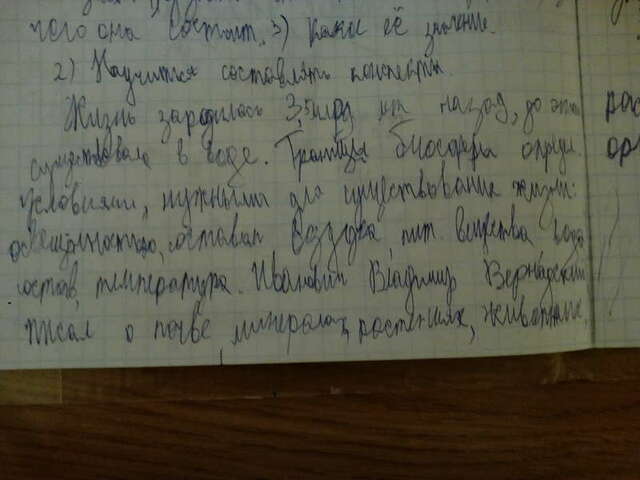 чего она состоит. 3) Каки её значение.
2) Научиться составлять конспекты.
Жизнь зародилась 3,5 млрд лет назад, до этого
существовала в воде. Границы биосферы опред.
условиями, нужными для существования жизни:
освещённостью, состав воздуха, пит. вещества, вода
состав, температура. Иванович Владимир Вернадский
писал о почве, минералах, растениях, животные,
рас
ор